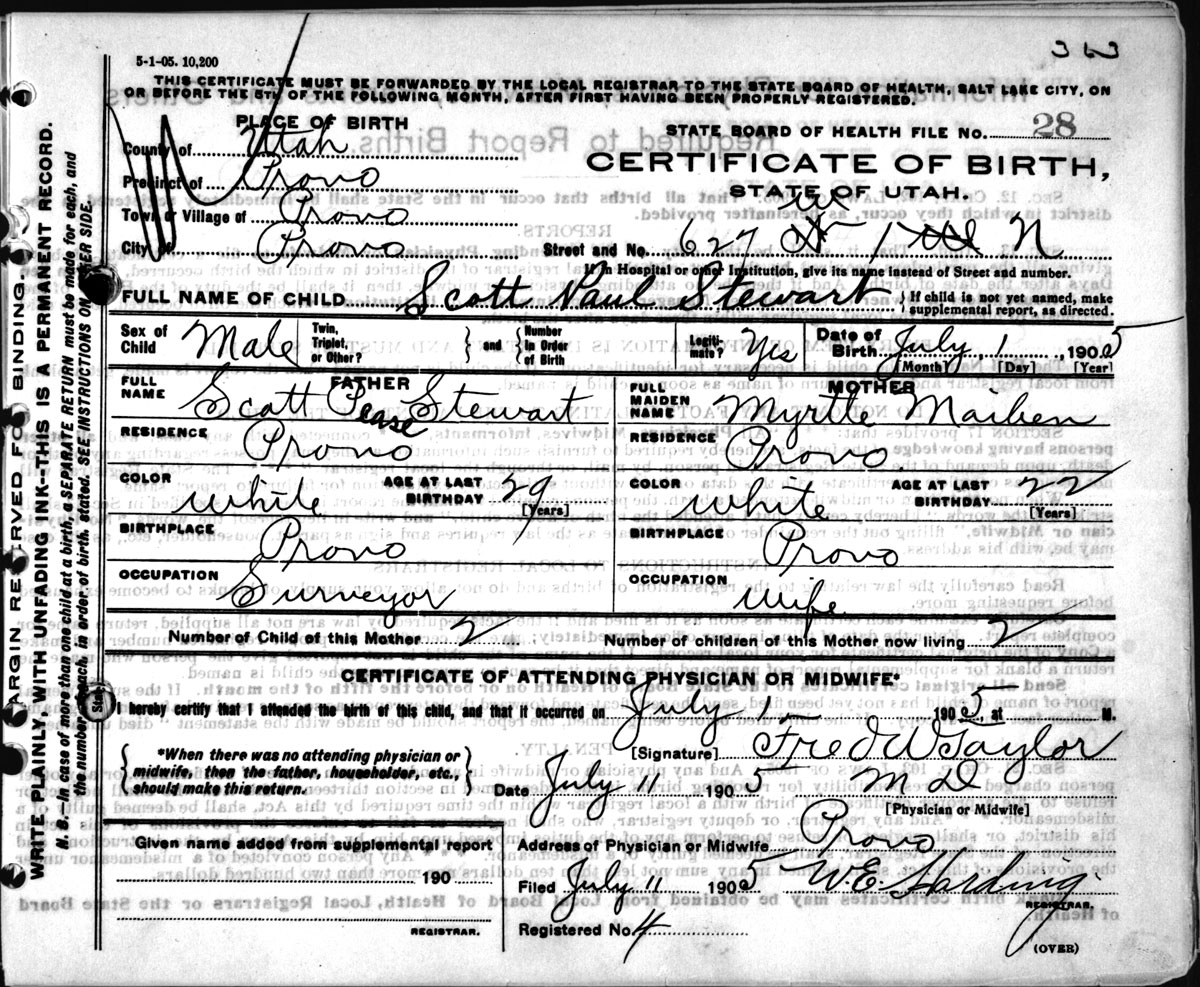 353
5-1-05. 10,200
THIS CERTIFICATE MUST BE FORWARDED BY THE LOCAL REGISTRAR TO THE STATE BOARD OF HEALTH, SALT LAKE CITY, ON
OR BEFORE THE 5TH OF THE FOLLOWING MONTH, AFTER FIRST HAVING BEEN PROPERLY REGISTERED.
PLACE OF BIRTH
County of Utah
Precinct of Provo
Town or Village of Provo
City of Provo
STATE BOARD OF HEALTH FILE NO. 28
CERTIFICATE OF BIRTH,
STATE OF UTAH.
Street and No. 627 W 1 N
If in Hospital or other Institution, give its name instead of Street and number.
FULL NAME OF CHILD Scott Paul Stewart { If child is not yet named, make
supplemental report, as directed.
Sex of Child Male Twin, Triplet, or Other? } and { Number in Order of Birth Legitimate? Yes Date of Birth July 1, 1905
[Month] [Day] [Year]
FATHER
FULL NAME Scott Pease Stewart
RESIDENCE Provo
COLOR White AGE AT LAST BIRTHDAY 29
[Years]
BIRTHPLACE Provo
OCCUPATION Surveyor
MOTHER
FULL MAIDEN NAME Myrtle Maiben
RESIDENCE Provo
COLOR White AGE AT LAST BIRTHDAY 22
[Years]
BIRTHPLACE Provo
OCCUPATION Wife
Number of Child of this Mother 2 Number of children of this Mother now living 2
CERTIFICATE OF ATTENDING PHYSICIAN OR MIDWIFE*
I hereby certify that I attended the birth of this child, and that it occurred on July 1 1905, at M.
{ *When there was no attending physician or
midwife, then the father, householder, etc.,
should make this return. }
[Signature] Fred W Taylor
Date July 11 1905 M D
[Physician or Midwife]
Given name added from supplemental report
190
REGISTRAR.
Address of Physician or Midwife Provo
Filed July 11 1905 W.E. Harding
REGISTRAR.
Registered No. 4
(OVER)
MARGIN RESERVED FOR BINDING.
WRITE PLAINLY, WITH UNFADING INK--THIS IS A PERMANENT RECORD.
N.B.--In case of more than one child at a birth, a SEPARATE RETURN must be made for each, and
the number of each, in order of birth, stated. SEE INSTRUCTIONS ON OTHER SIDE.